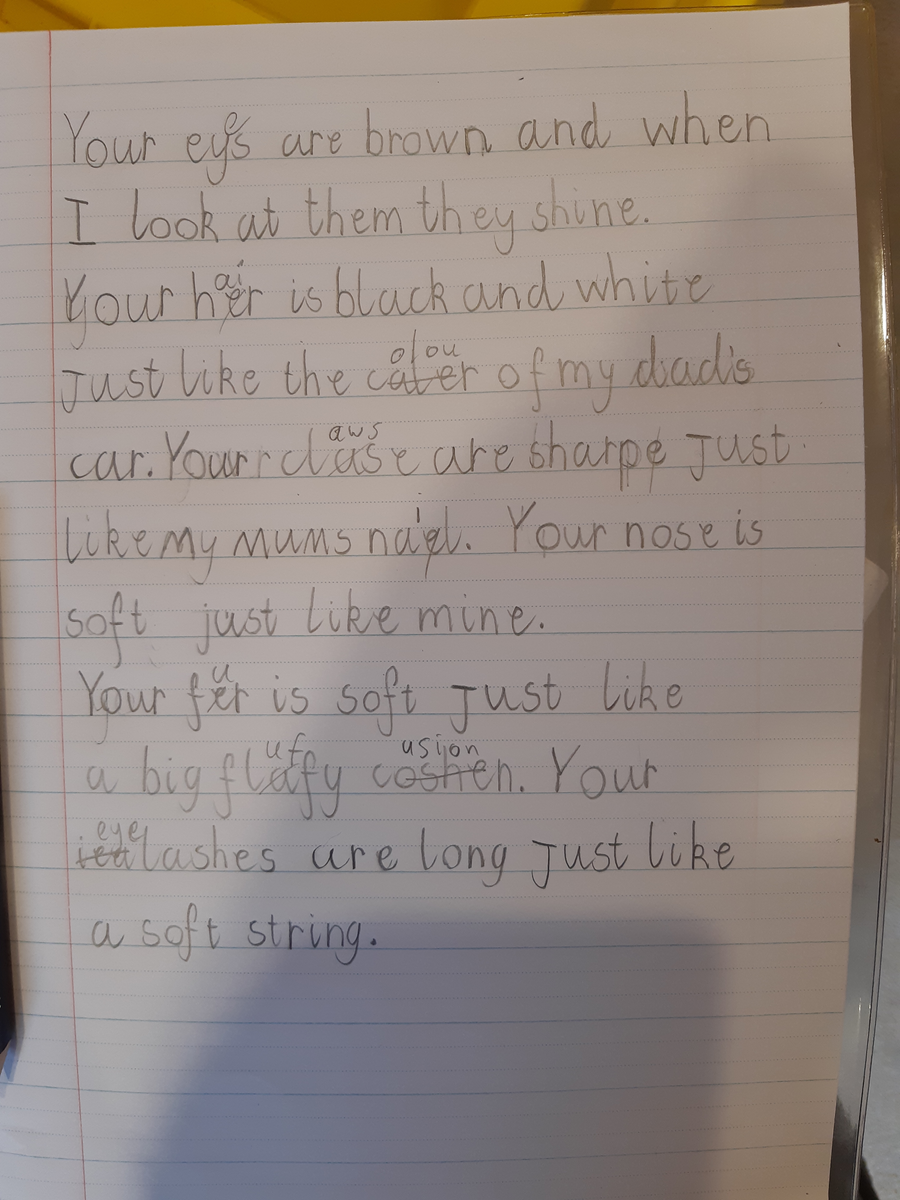 Your eyes are brown and when
I look at them they shine.
Your hair is black and white
Just like the colour of my dad's
car. Your claws are sharp Just
like my mums nail. Your nose is
soft just like mine.
Your fur is soft Just like
a big fluffy cusion. Your
eyelashes are long Just like
a soft string.